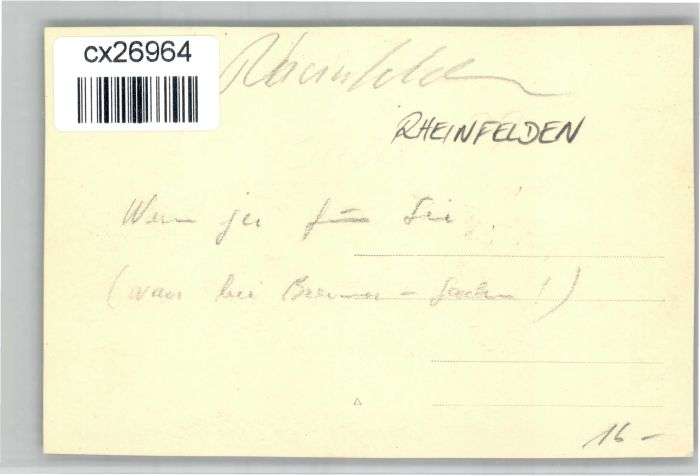 cx26964
Rheinfelden
RHEINFELDEN
Wenn für Sie!
(war bei Bremer - !)
16 -